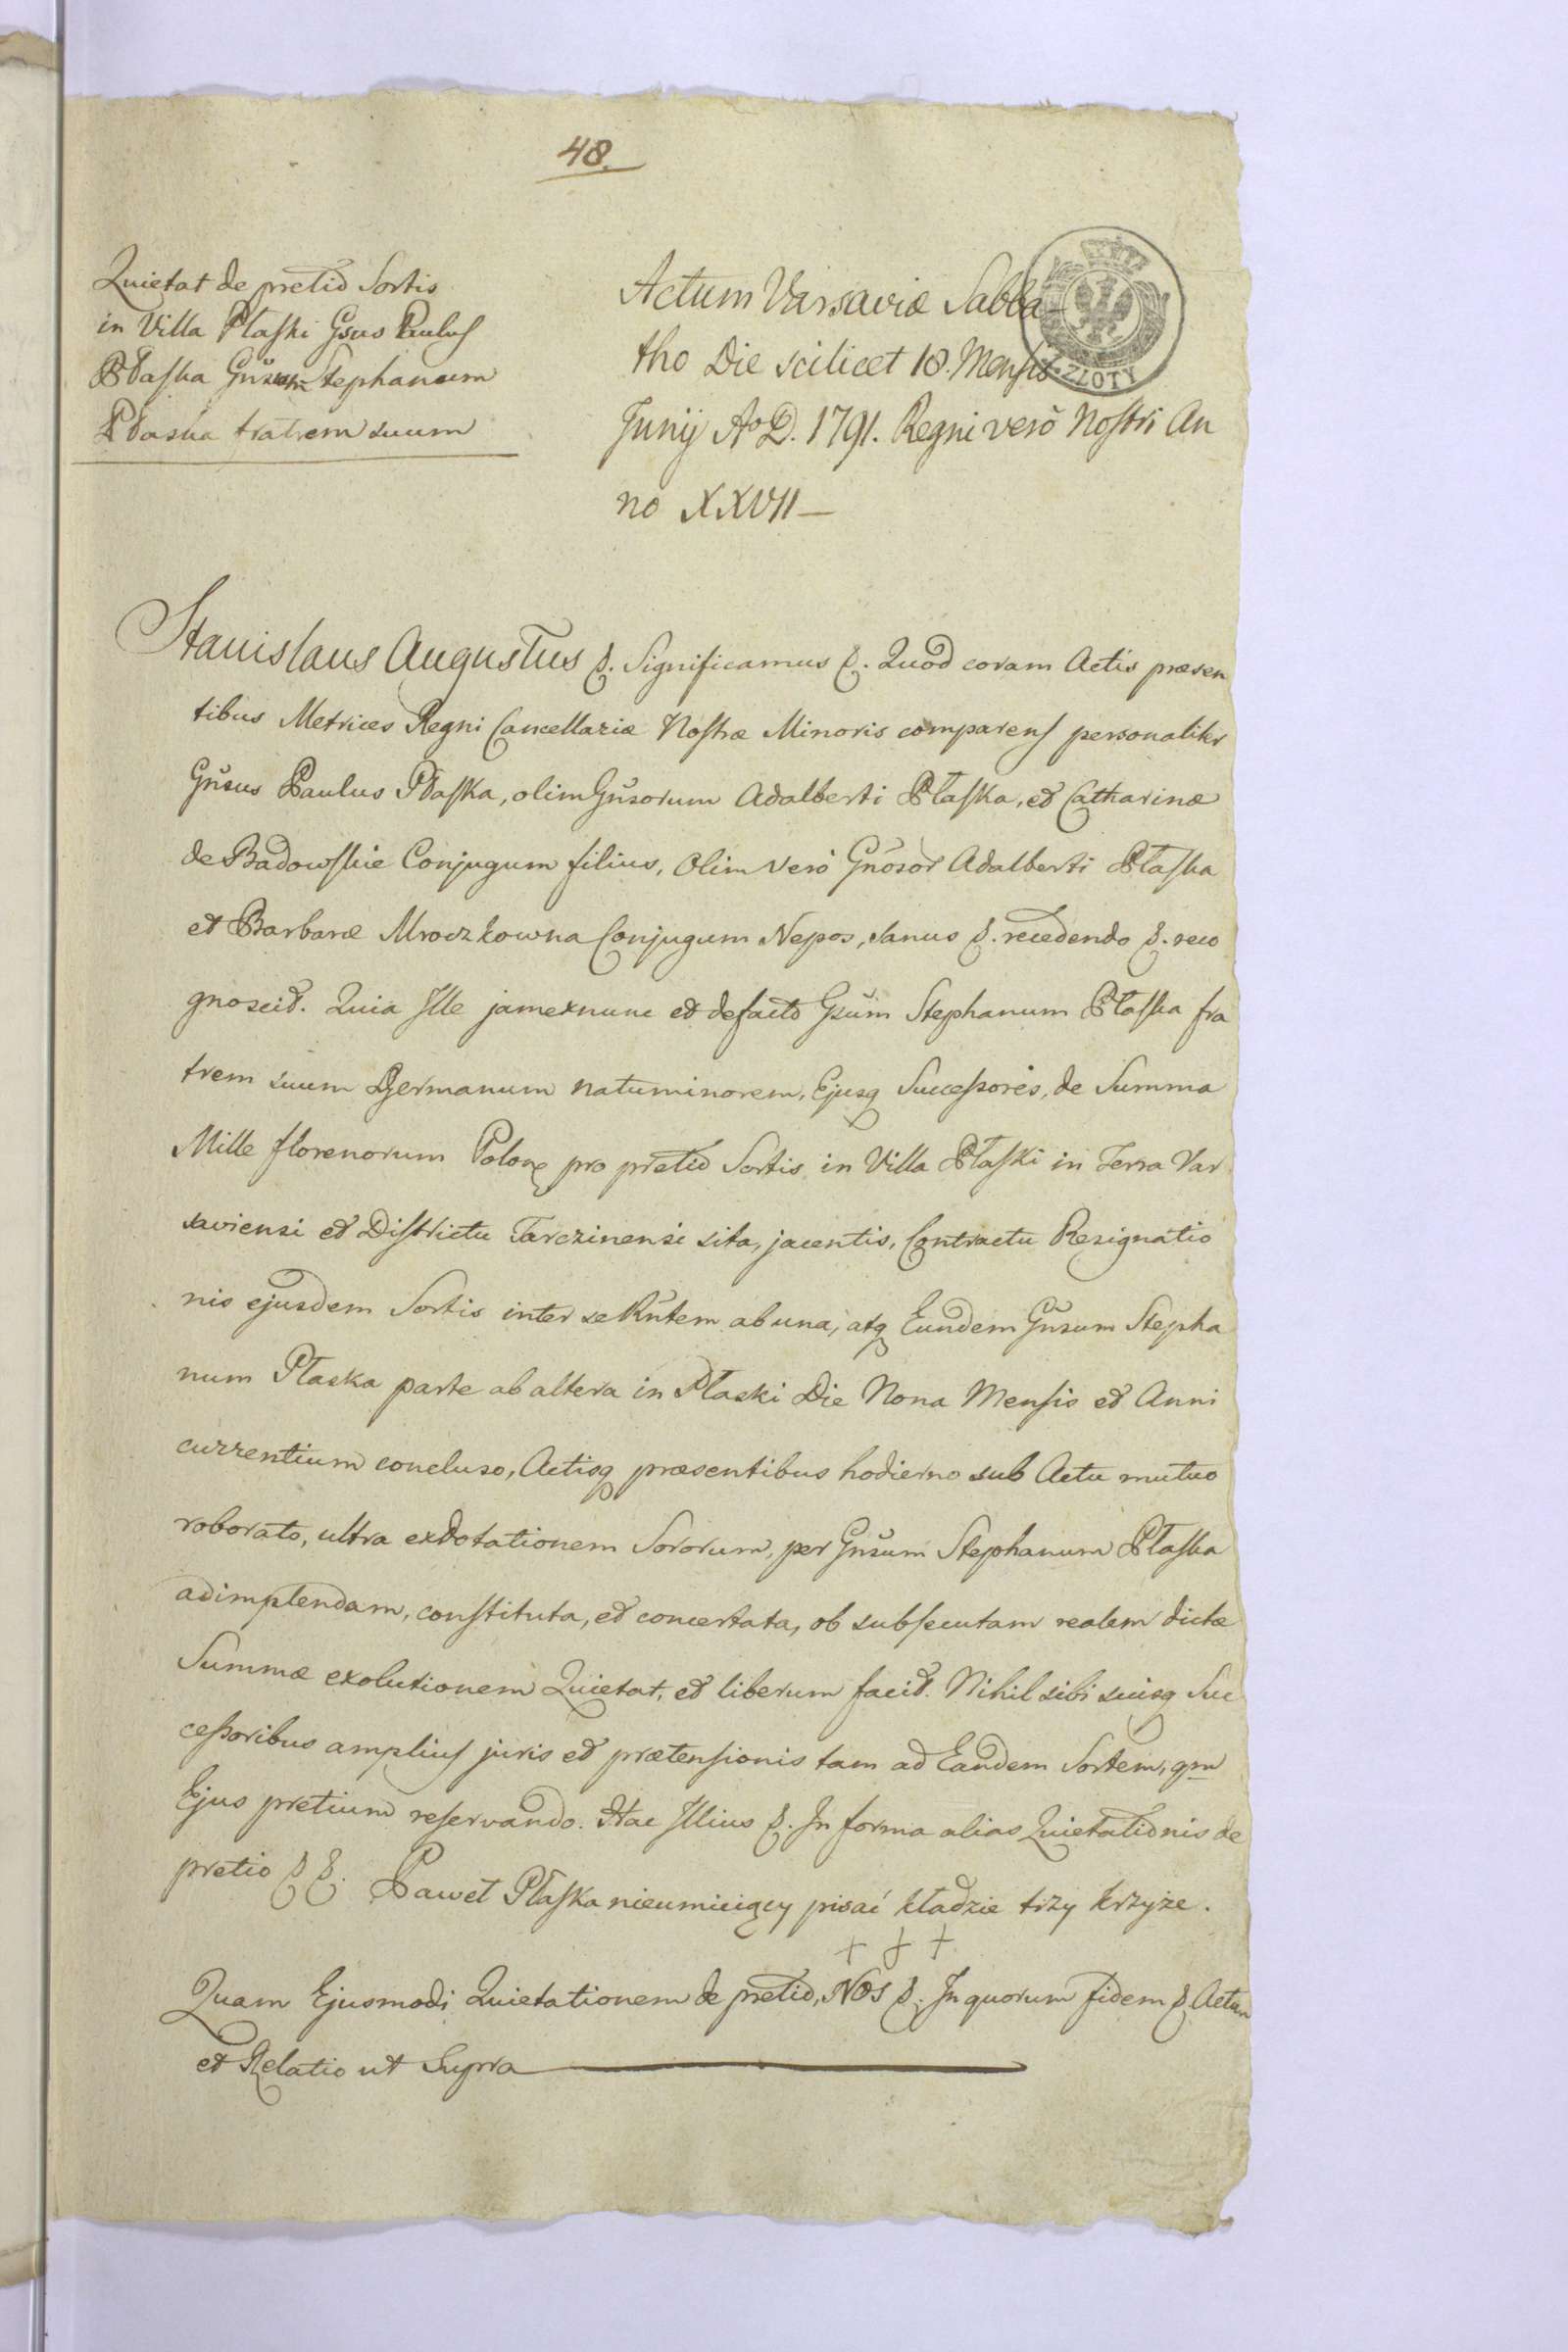 48.
Quietat de pretio Sortis
in Villa Płaski Gsus Paulus
Płaska Gnsum Stephanum
Płaska fratrem suum
Actum Varsaviæ Sabba-
tho Die scilicet 18. Mensis
ZŁOTY
Junij Ao D. 1791. Regni verò Nostri An
no XXVII—
Stanislaus Augustus &. Significamus &. Quod coram Actis præsen
tibus Metrices Regni Cancellariæ Nostræ Minoris comparens personaliter
Gnsus Paulus Płaska, olim Gnsorum Adalberti Płaska, et Catharinæ
de Badowskie Conjugum filius, Olim verò Gnosor Adalberti Płaska
et Barbaræ Mroczkowna Conjugum Nepos, sanus &. recedendo &. reco
gnoscit. Quia Ille jamexnunc et defacto Gsum Stephanum Płaska fra
trem suum Germanum natuminorem, Ejusq Successores, de Summa
Mille florenorum Polon pro pretio Sortis in Villa Płaski in Terra Var
saviensi et Districtu Tarczinensi sita, jacentis, Contractu Resignatio
nis ejusdem Sortis inter se Rntem ab una, atq Eundem Gnsum Stepha
num Płaska parte ab altera in Płaski Die Nona Mensis et Anni
currentium concluso, Actisq præsentibus hodierno sub Actu mutuo
roborato, ultra exdotationem Sororum, per Gnsum Stephanum Płaska
adimplendam, constituta, et concertata, ob subsecutam realem dictæ
Summæ exolutionem Quietat, et liberum facit. Nihil sibi suisq Suc
cessoribus amplius juris et prætensionis tam ad Eandem Sortem, qm
Ejus pretium reservando. Hac Illius &. In forma alias Quietationis de
pretio & &. Paweł Płaska nieumieiący pisać kładzie trzy krzyże.
+ + +
Quam Ejusmodi Quietationem de pretio, Nos &. In quorum fidem &. Actum
et Relatio ut Supra